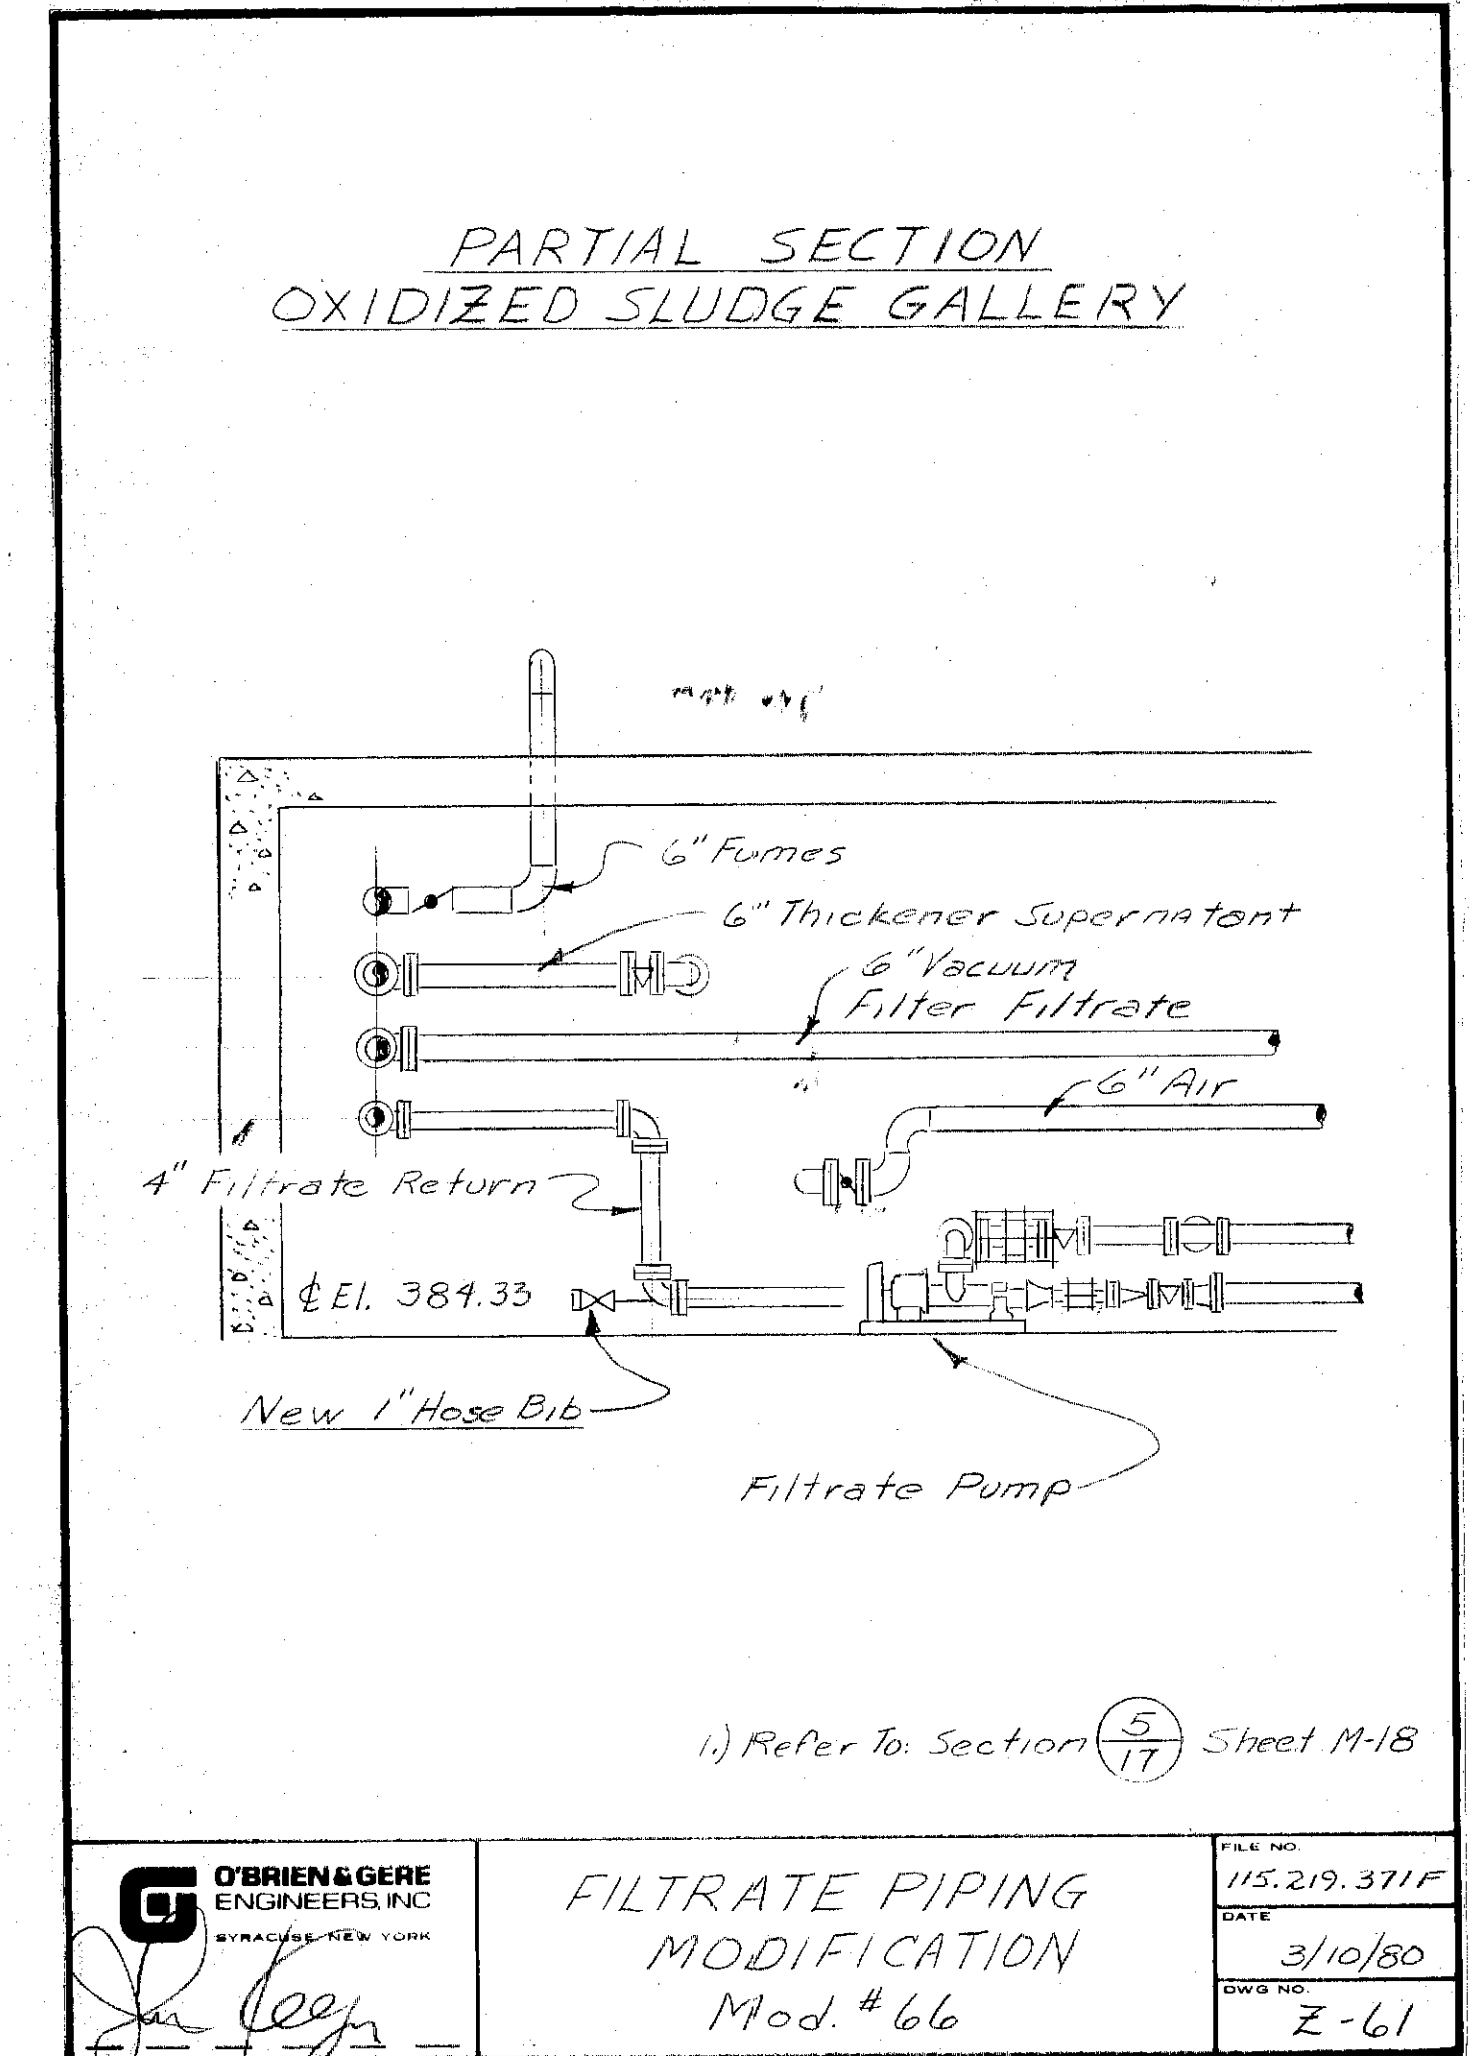 PARTIAL SECTION
OXIDIZED SLUDGE GALLERY
6" Fumes
6" Thickener Supernatant
6" Vacuum
Filter Filtrate
6" Air
4" Filtrate Return
℄ El. 384.33
New 1" Hose Bib
Filtrate Pump
1.) Refer To: Section 5/17 Sheet M-18
O'BRIEN & GERE
ENGINEERS, INC
SYRACUSE, NEW YORK
FILTRATE PIPING
MODIFICATION
Mod. # 66
FILE NO.
115.219.371F
DATE
3/10/80
DWG NO.
Z-61